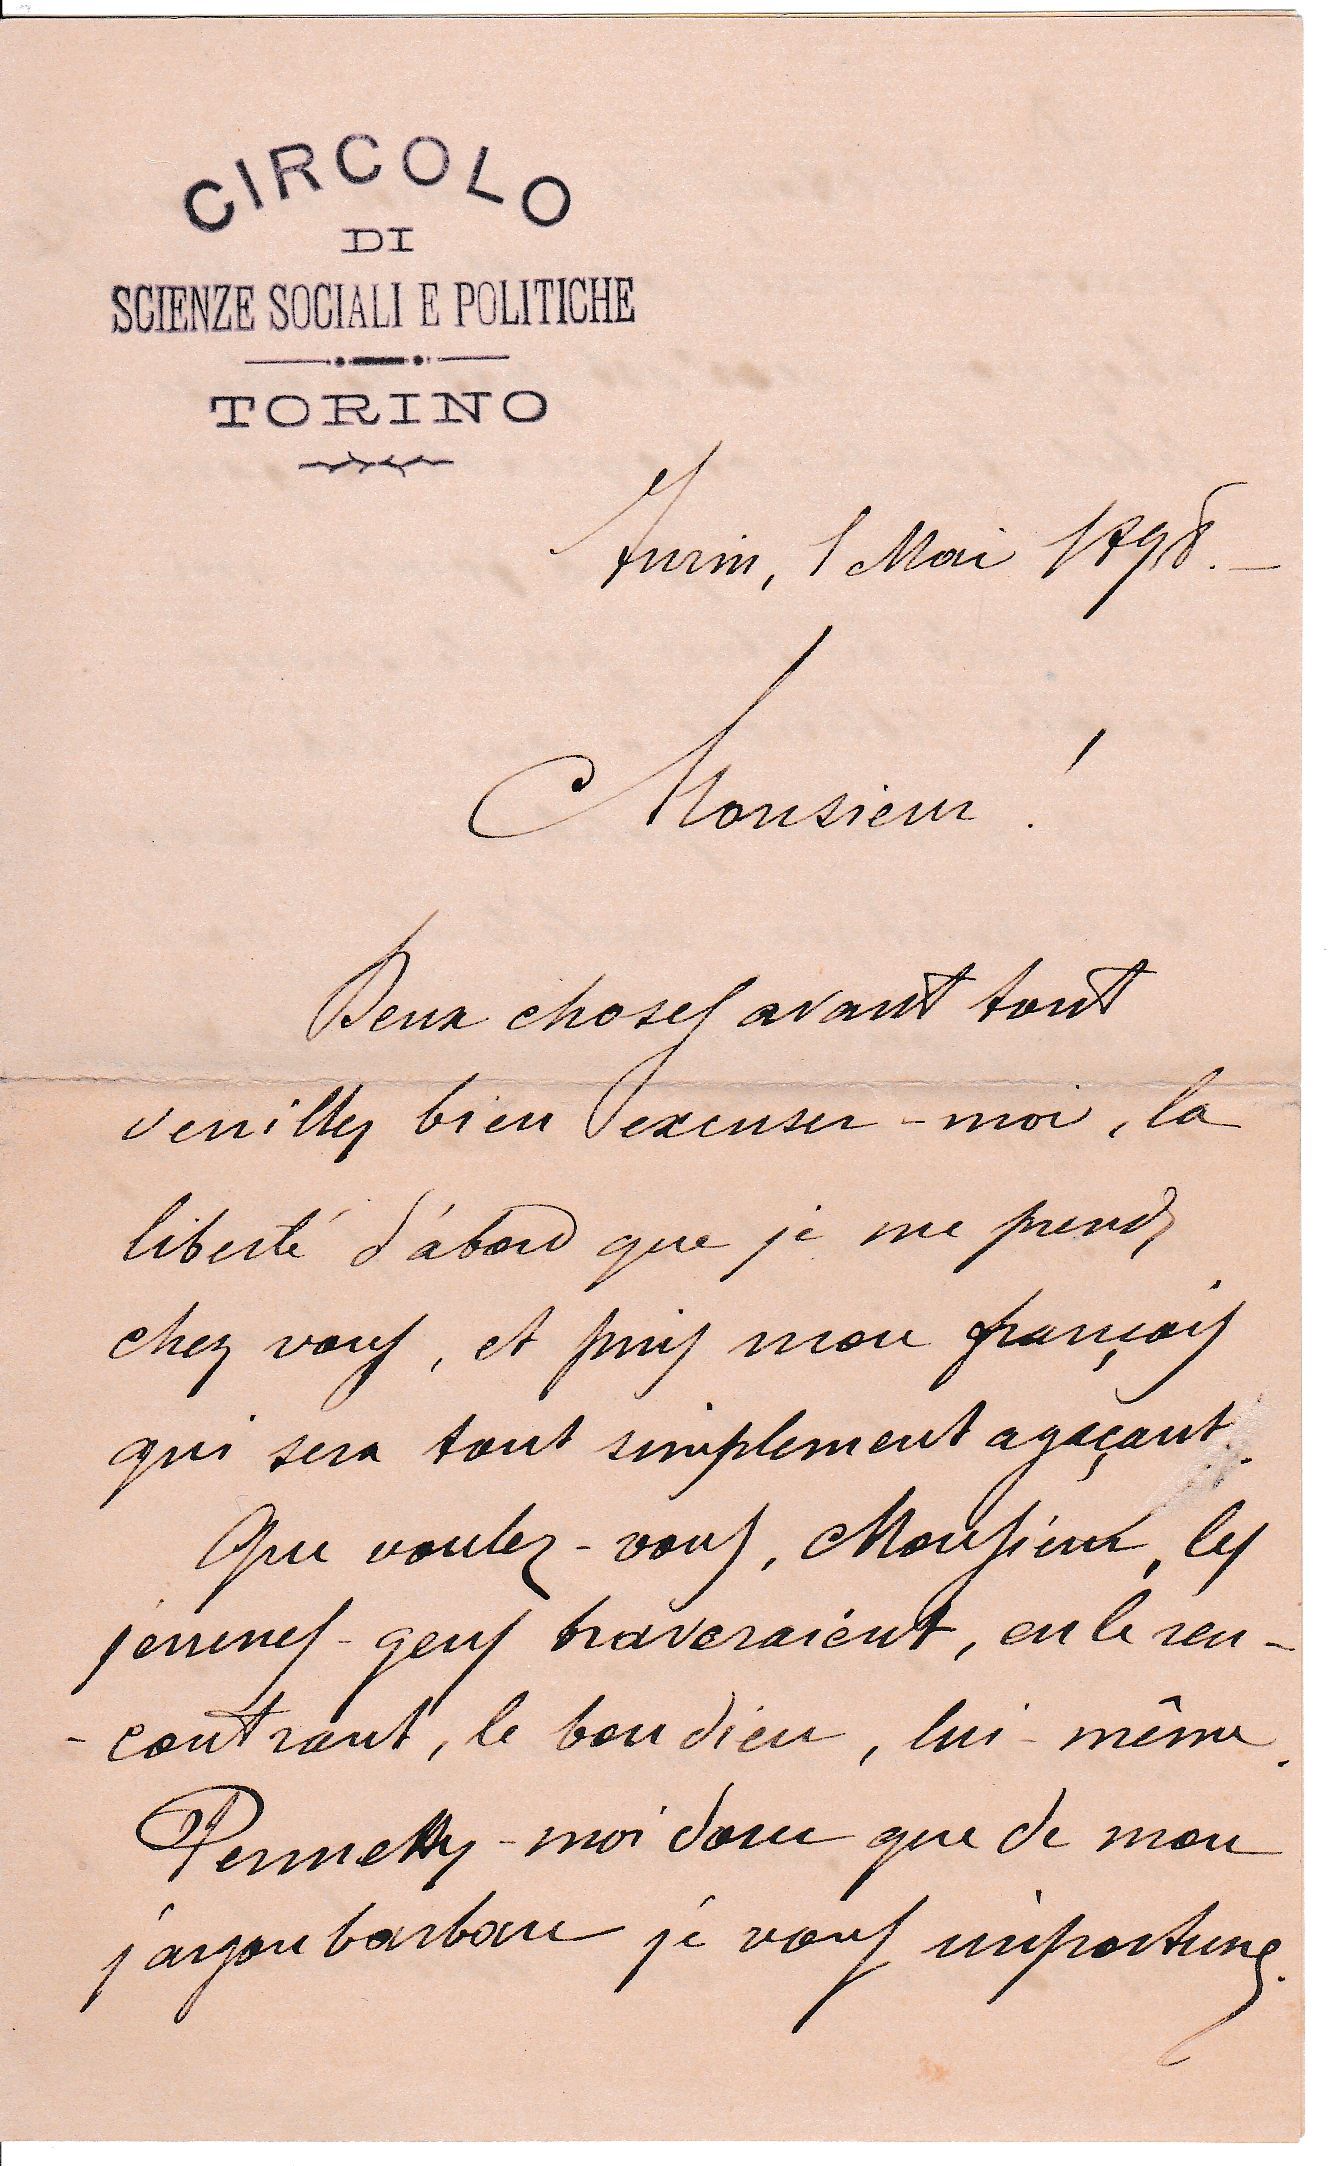 CIRCOLO
DI
SCIENZE SOCIALI E POLITICHE
TORINO
Turin, 1 Mai 1898.-
Monsieur!
Deux choses avant tout
veuillez bien excuser-moi, la
liberté d'abord que je me prends
chez vous, et puis mon français
qui sera tout simplement agaçant.
Que voulez-vous, Monsieur, les
jeunes-gens braveraient, en le ren-
-contrant, le bon dieu, lui-même.
Permettez-moi donc que de mon
jargon barbare je vous importune.